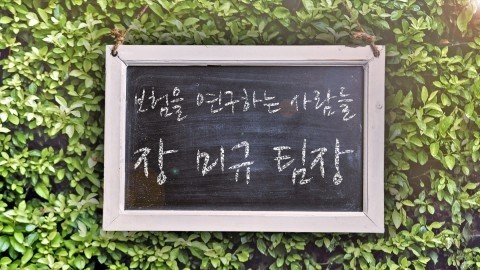 보험을 연구하는 사람들
장 미규 팀장